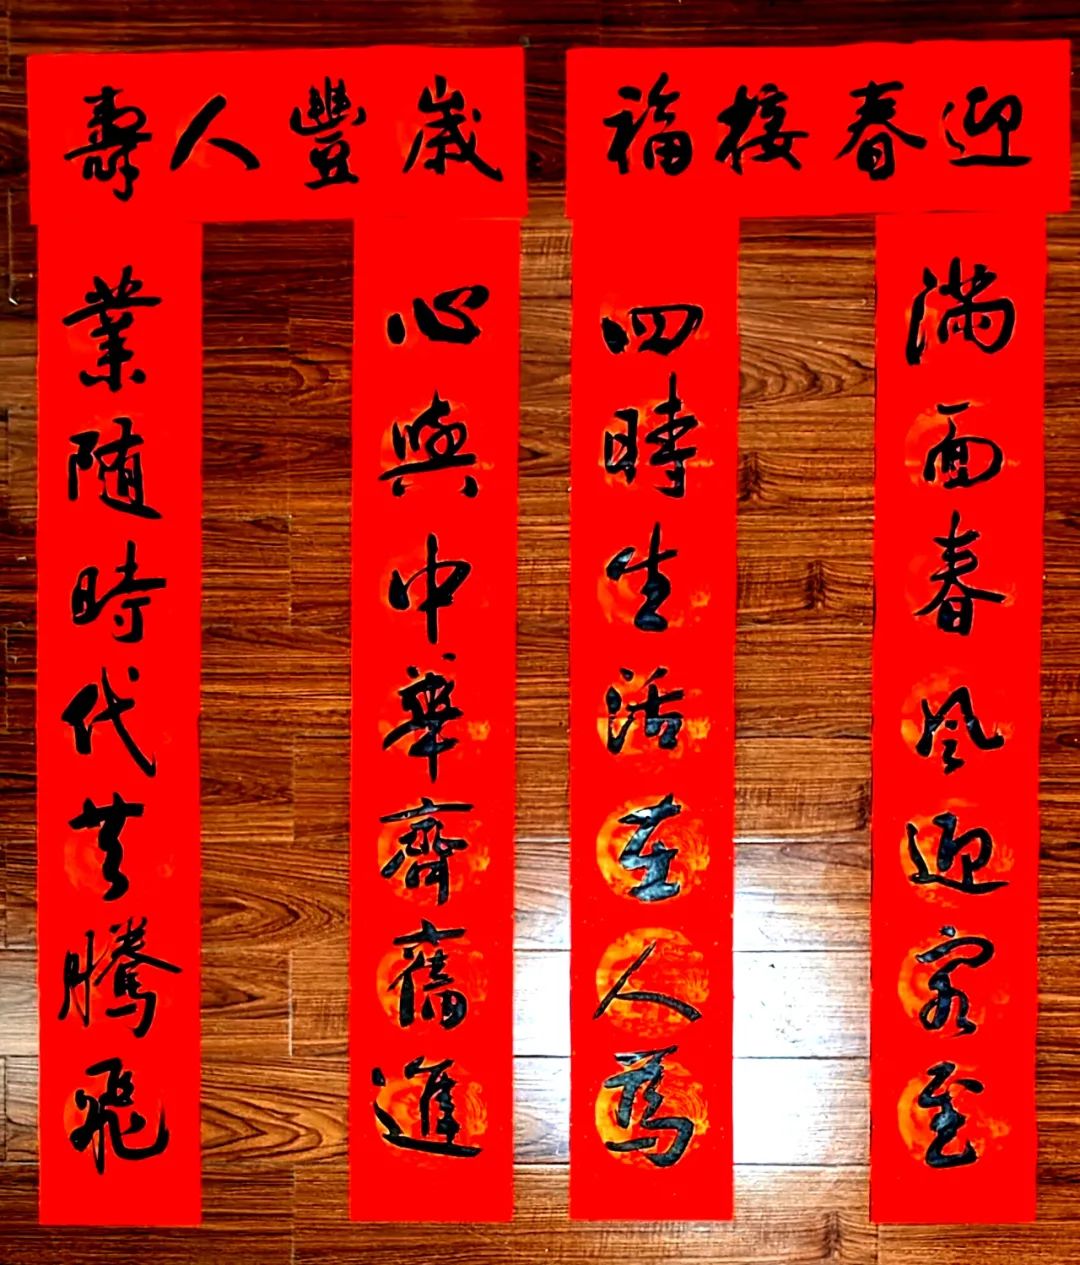 迎春接福
满面春風迎客至
四時生活在人為
歲豐人壽
心與中華齊奮進
業随時代共騰飛